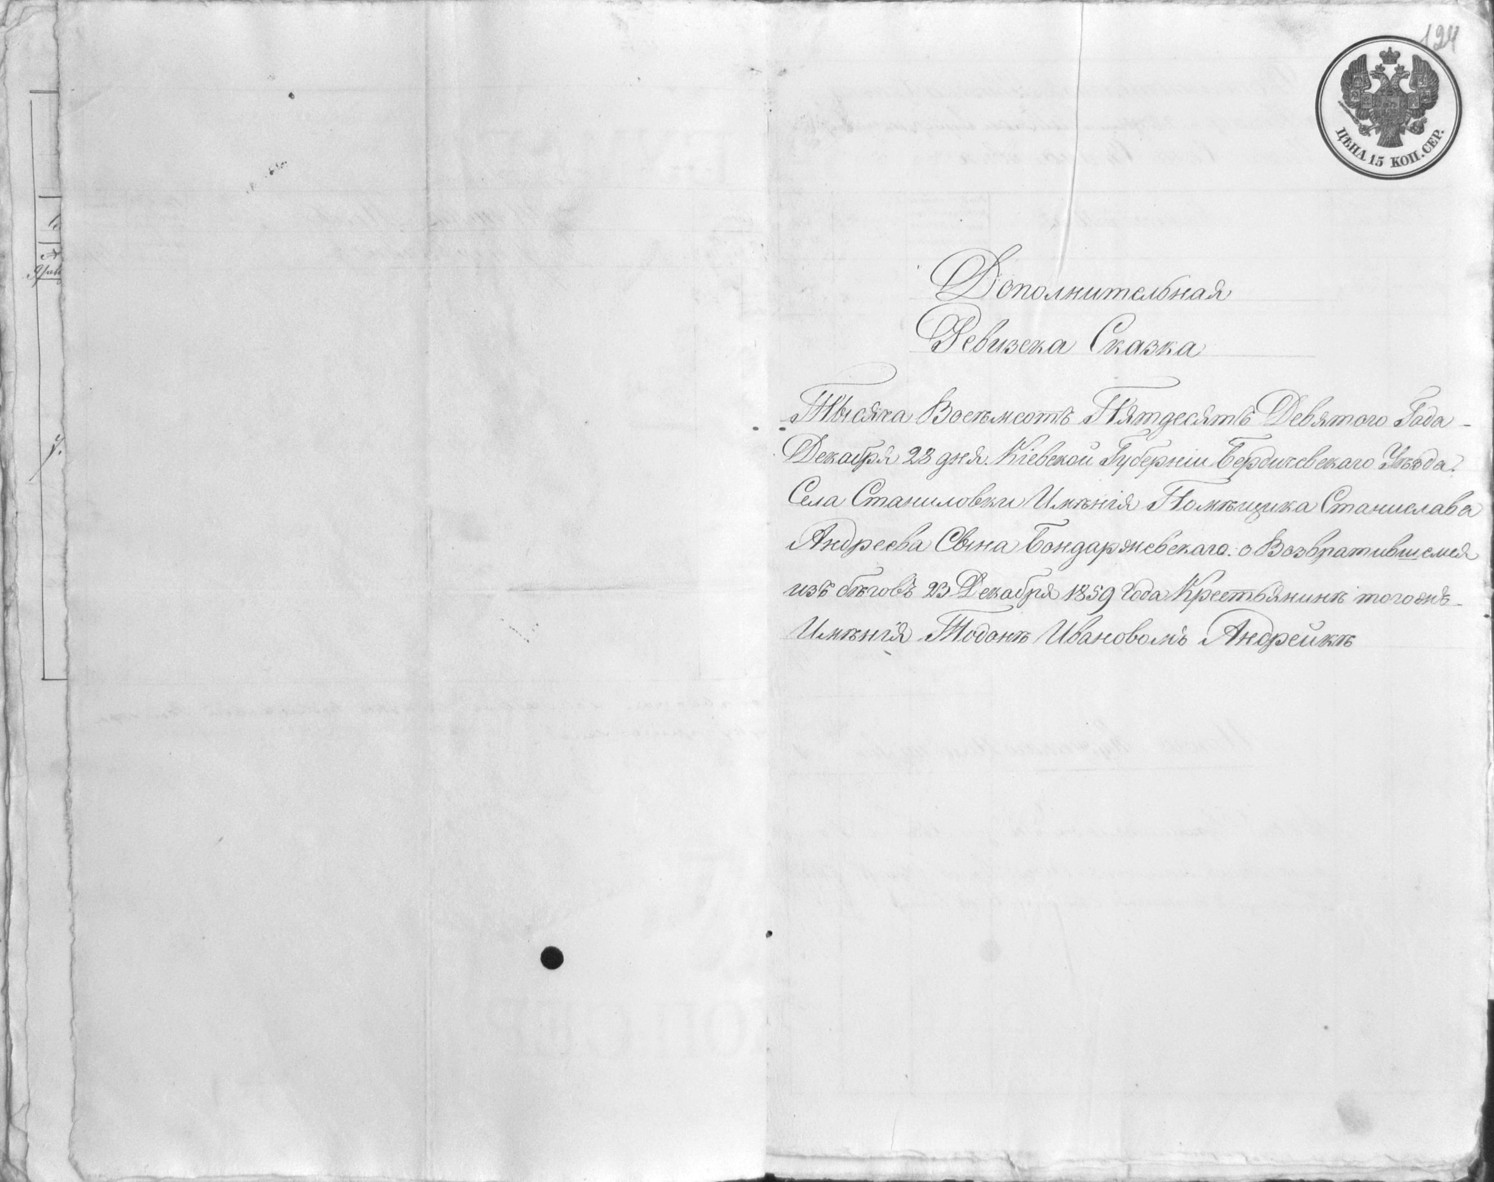 124
ЦѢНА 15 КОП. СЕР.
Дополнительная
Ревизска Сказка
Тысяча Восемьсотъ Пятдесятъ Девятого Года
Декабря 23 дня. Кіевской Губерніи Бердичевскаго Уѣзда
Села Станиловки Имѣнія Помѣщика Станислава
Андреева Сына Бондаржевскаго. о Возвратившемся
изъ бѣговъ 23 Декабря 1859 Года Крестьянинѣ тогожѣ
Имѣнія Тодонѣ Ивановомъ Андрейкѣ